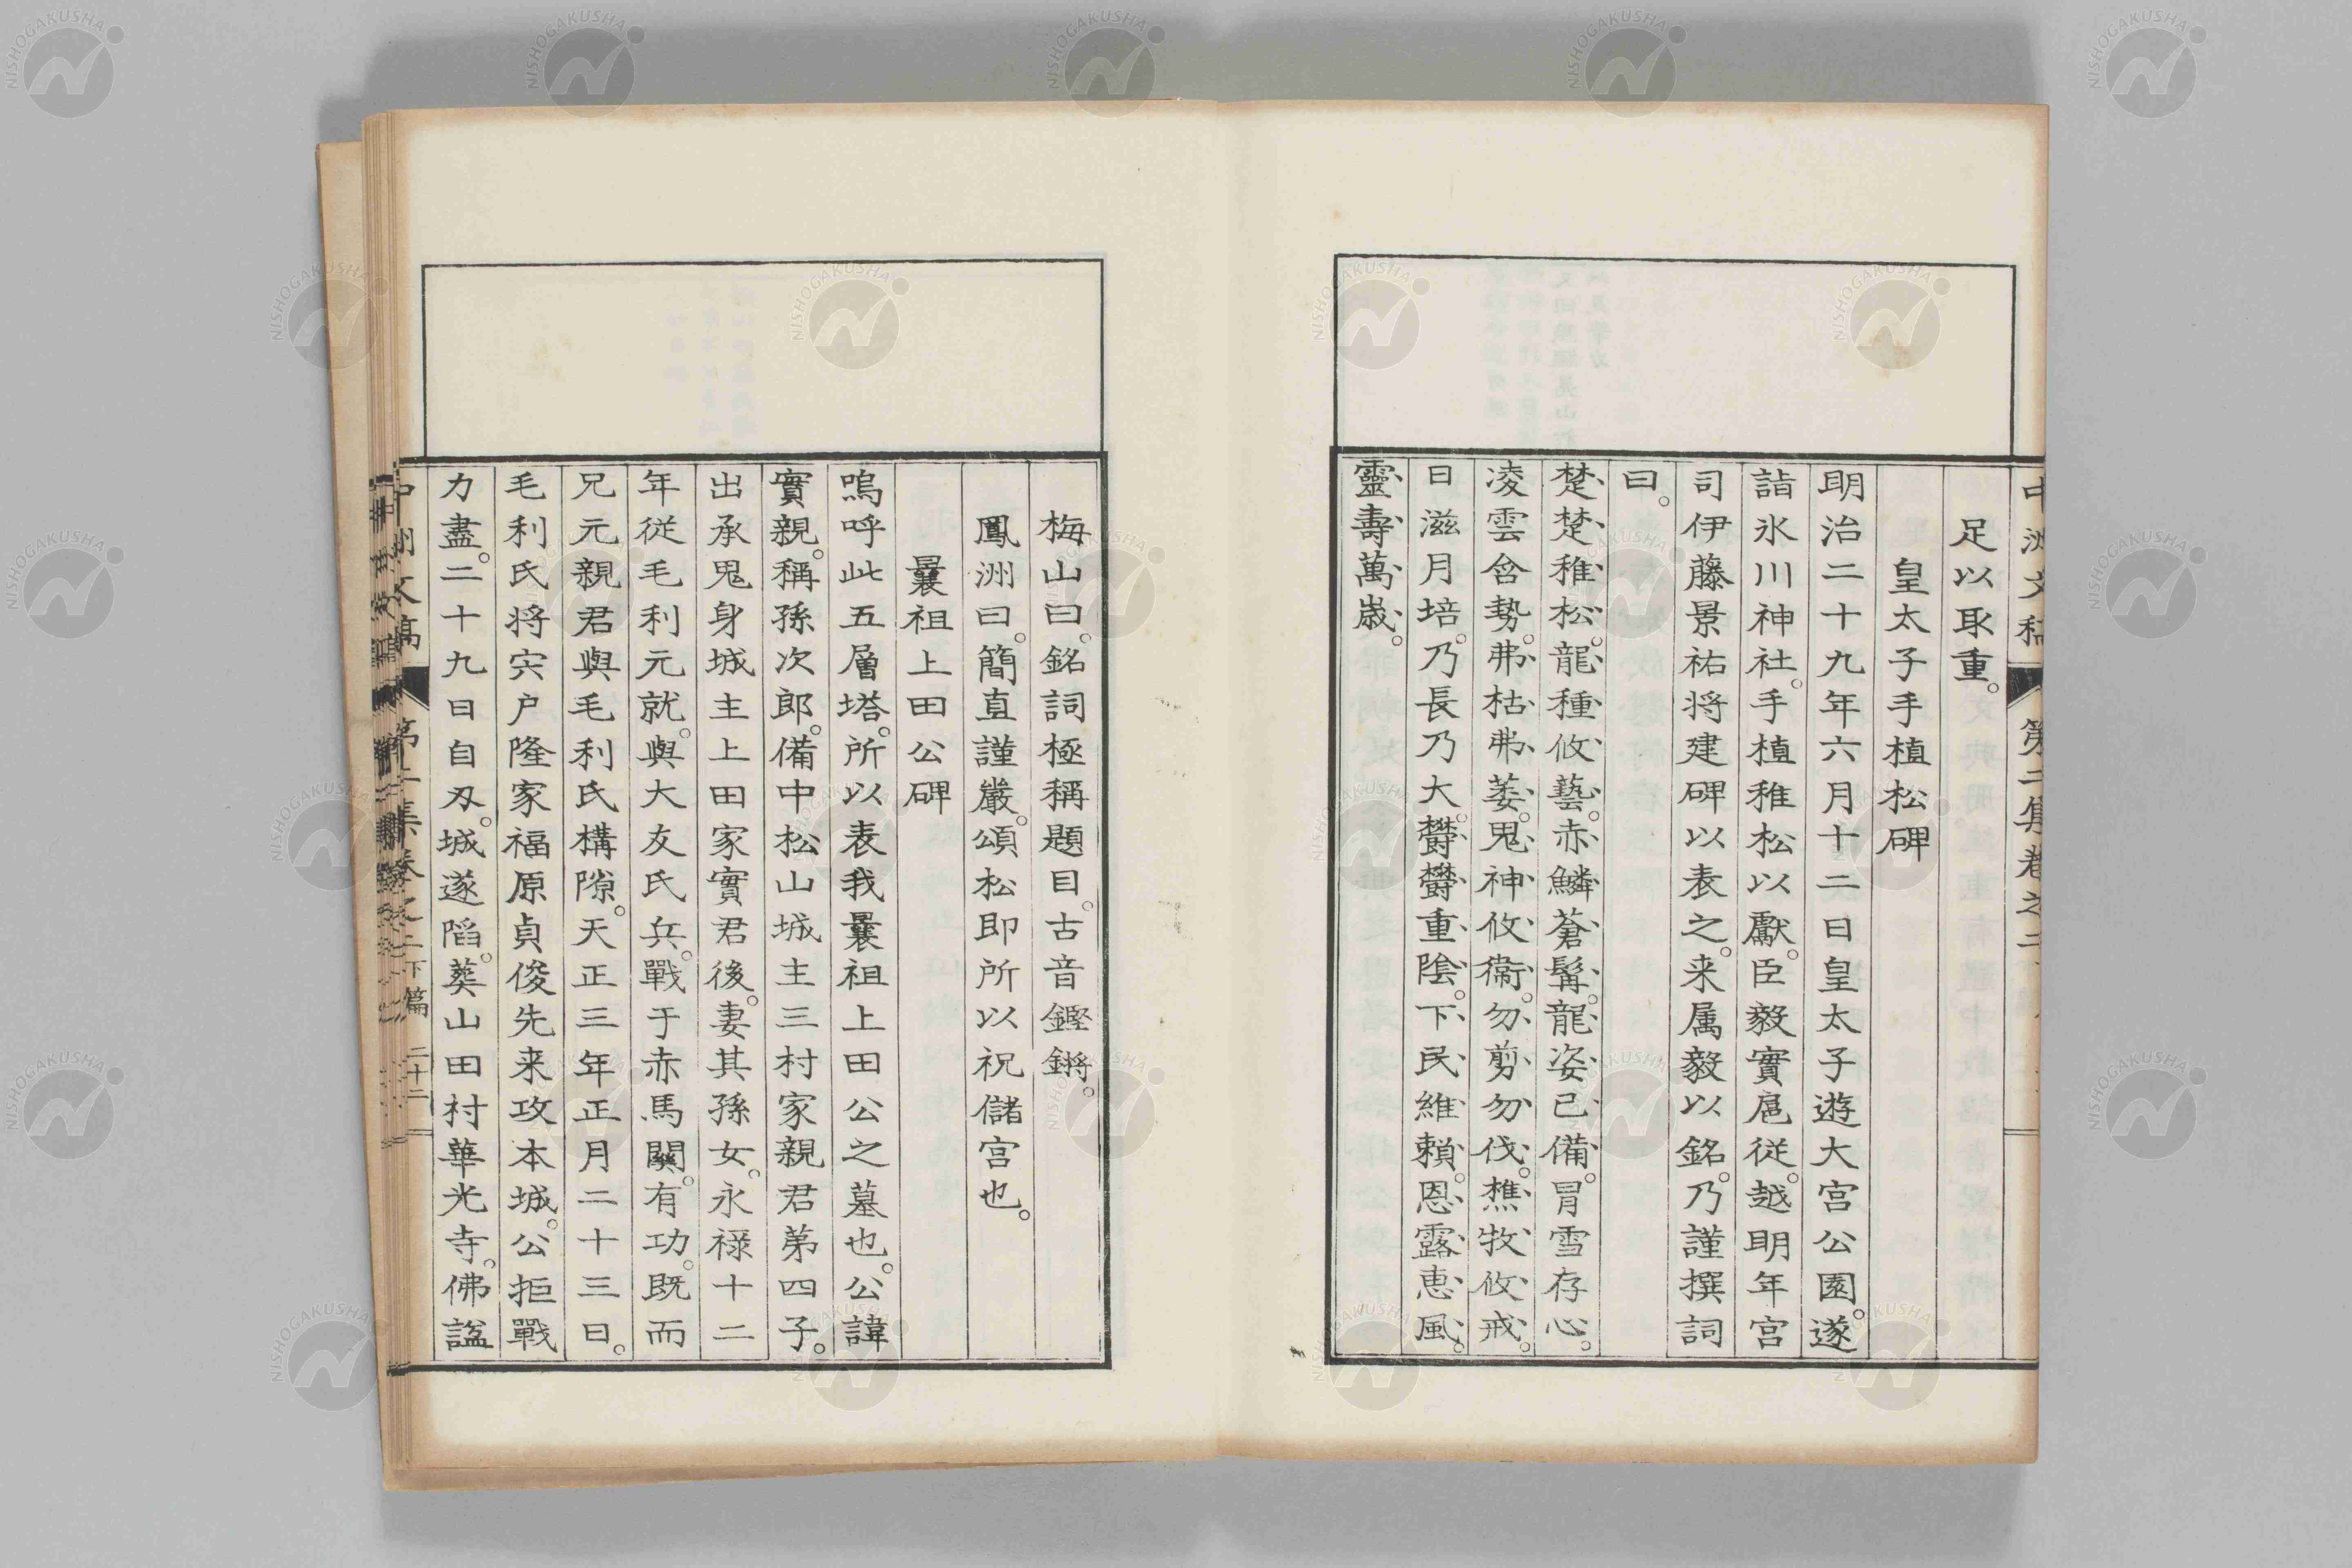 中洲文稿 第二集卷之二
足以取重。
皇太子手植松碑
明治二十九年六月十二日皇太子遊大宮公園。遂
詣氷川神社。手植稚松以獻。臣毅實扈従。越明年宮
司伊藤景祐将建碑以表之。来属毅以銘。乃謹撰詞
曰。
楚楚稚松。龍種攸藝。赤鱗蒼髯。龍姿已備。冒雪存心。
凌雲含勢。弗枯弗萎。鬼神攸衞。勿剪勿伐。樵牧攸戒。
日滋月培。乃長乃大。欝欝重陰。下民維頼。恩露恵風。
靈壽萬歳。
梅山曰。銘詞極稱題目。古音鏗鏘。
鳳洲曰。簡直謹嚴。頌松即所以祝儲宮也。
曩祖上田公碑
嗚呼此五層塔。所以表我曩祖上田公之墓也。公諱
實親。稱孫次郎。備中松山城主三村家親君第四子。
出承鬼身城主上田家實君後。妻其孫女。永禄十二
年従毛利元就。與大友氏兵。戰于赤馬關。有功。既而
兄元親君與毛利氏構隙。天正三年正月二十三日。
毛利氏将宍戸隆家福原貞俊先来攻本城。公拒戰
力盡。二十九日自刃。城遂陷。葬山田村華光寺。佛諡
中洲文稿 第二集卷之二下篇 二十二